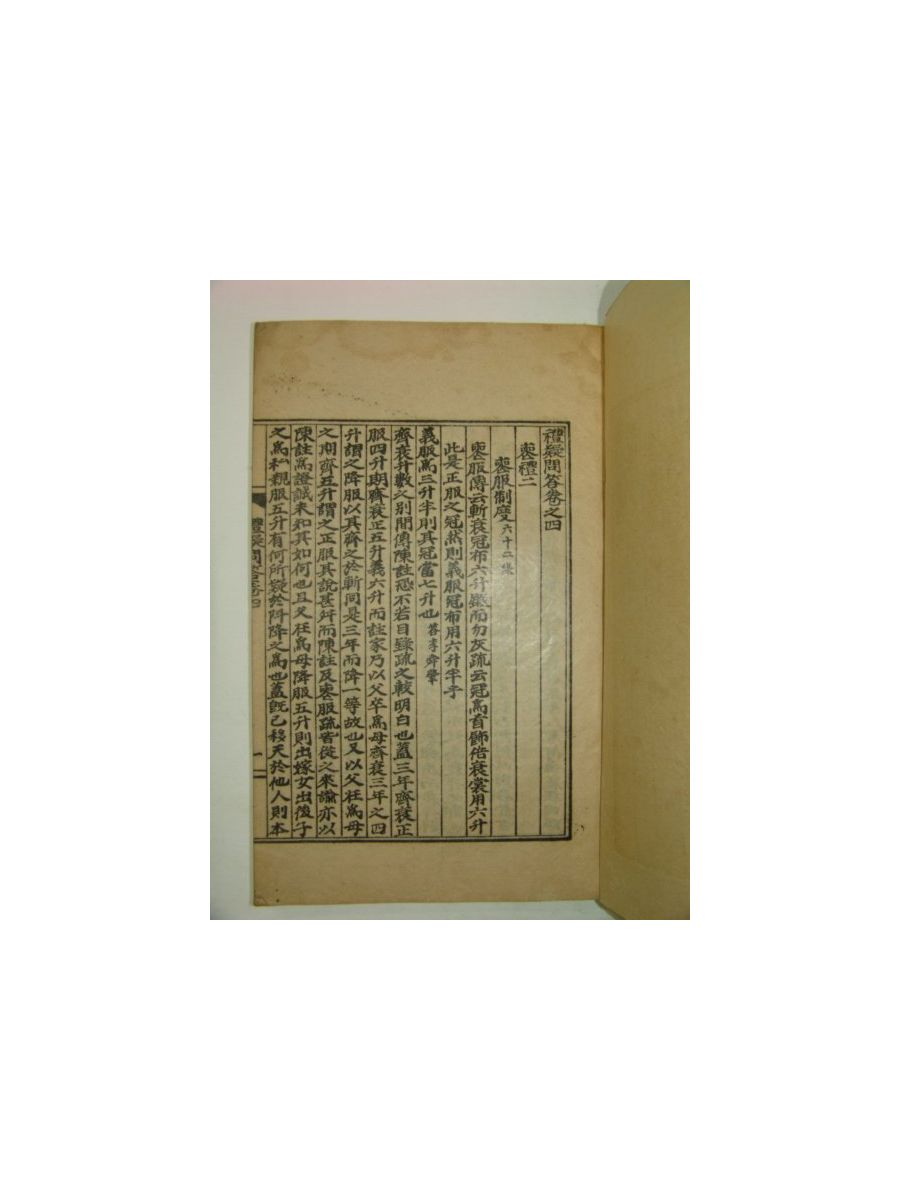 禮疑問答卷之四
喪禮二
喪服制度六十二条
喪服傳云斬衰冠布六升鍛而勿灰疏云冠爲首飾倍衰裳用六升
此是正服之冠然則義服冠布用六升半乎
義服爲三升半則其冠當七升也答李舜肇
齊衰升數之別間傳陳註恐不若目錄疏之較明白也盖三年齊衰正
服四升期齊衰正五升義六升而註家乃以父卒爲母齊衰三年之四
升謂之降服以其齊之於斬同是三年而降一等故也又以父在爲母
之期齊五升謂之正服其說甚舛而陳註及喪服疏皆從之來諭亦以
陳註爲證誠未知其如何也且父在爲母降服五升則出嫁女出後子
之爲私親服五升有何所疑於降之爲也盖旣已移天於他人則本
禮疑問答卷四
一